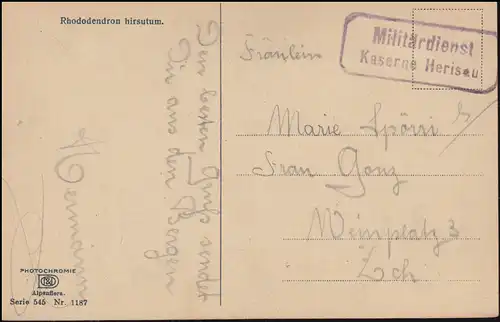 Rhododendron hirsutum.
Den besten Gruß sendet
Dir aus den Bergen
Hermann
PHOTOCHROMIE
Alpenflora.
Serie 545 Nr. 1187
Militärdienst
Kaserne Herisau
Fräulein
Marie Spörri
Frau Ganz
Weinplatz 3
Zch